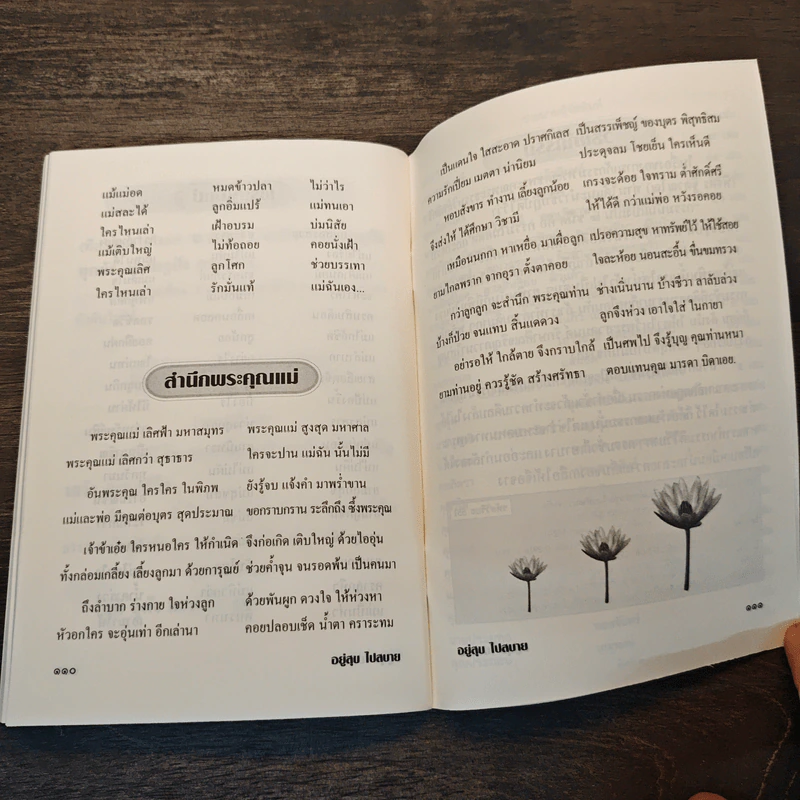 แม้แม่อด หมดข้าวปลา ไม่ว่าไร
แม่สละได้ ลูกอิ่มแปร้ แม่ทนเอา
ใครไหนเล่า เฝ้าอบรม บ่มนิสัย
แม้เติบใหญ่ ไม่ท้อถอย คอยนั่งเฝ้า
พระคุณเลิศ ลูกโศก ช่วยบรรเทา
ใครไหนเล่า รักมั่นแท้ แม่ฉันเอง...
สำนึกพระคุณแม่
พระคุณแม่ เลิศฟ้า มหาสมุทร พระคุณแม่ สูงสุด มหาศาล
พระคุณแม่ เลิศกว่า สุธาธาร ใครจะปาน แม่ฉัน นั้นไม่มี
อันพระคุณ ใครใคร ในพิภพ ยังรู้จบ แจ้งคำ มาพร่ำขาน
แม่และพ่อ มีคุณต่อบุตร สุดประมาณ ขอกราบกราน ระลึกถึง ซึ้งพระคุณ
เจ้าข้าเอ๋ย ใครหนอใคร ให้กำเนิด จึงก่อเกิด เติบใหญ่ ด้วยไออุ่น
ทั้งกล่อมเกลี้ยง เลี้ยงลูกมา ด้วยการุณย์ ช่วยค้ำจุน จนรอดพ้น เป็นคนมา
ถึงลำบาก ร่างกาย ใจห่วงลูก ด้วยพันผูก ดวงใจ ให้ห่วงหา
หัวอกใคร จะอุ่นเท่า อีกเล่านา คอยปลอบเช็ด น้ำตา คราระทม
อยู่สุข ไปสบาย
๑๑๐
เป็นแดนใจ ใสสะอาด ปราศกิเลส เป็นสรรเพ็ชญ์ ของบุตร พิสุทธิสม
ความรักเปี่ยม เมตตา น่านิยม ประดุจลม โชยเย็น ใครเห็นดี
หอบสังขาร ทำงาน เลี้ยงลูกน้อย เกรงจะด้อย ใจทราม ต่ำศักดิ์ศรี
จึงส่งให้ ได้ศึกษา วิชามี ให้ได้ดี กว่าแม่พ่อ หวังรอคอย
เหมือนนกกา หาเหยื่อ มาเผื่อลูก เปรอความสุข หาทรัพย์ไว้ ให้ใช้สอย
ยามไกลพราก จากอุรา ตั้งตาคอย ใจละห้อย นอนสะอื้น ขื่นขมทรวง
กว่าลูกลูก จะสำนึก พระคุณท่าน ช่างเนิ่นนาน บ้างชีวา ลาลับล่วง
บ้างก็ป่วย จนแทบ สิ้นแดดวง ลูกจึงห่วง เอาใจใส่ ในกายา
อย่ารอให้ ใกล้ตาย จึงกราบใกล้ เป็นศพไป จึงรู้บุญ คุณท่านหนา
ยามท่านอยู่ ควรรู้ชัด สร้างศรัทธา ตอบแทนคุณ มารดา บิดาเอย.
อยู่สุข ไปสบาย
๑๑๑